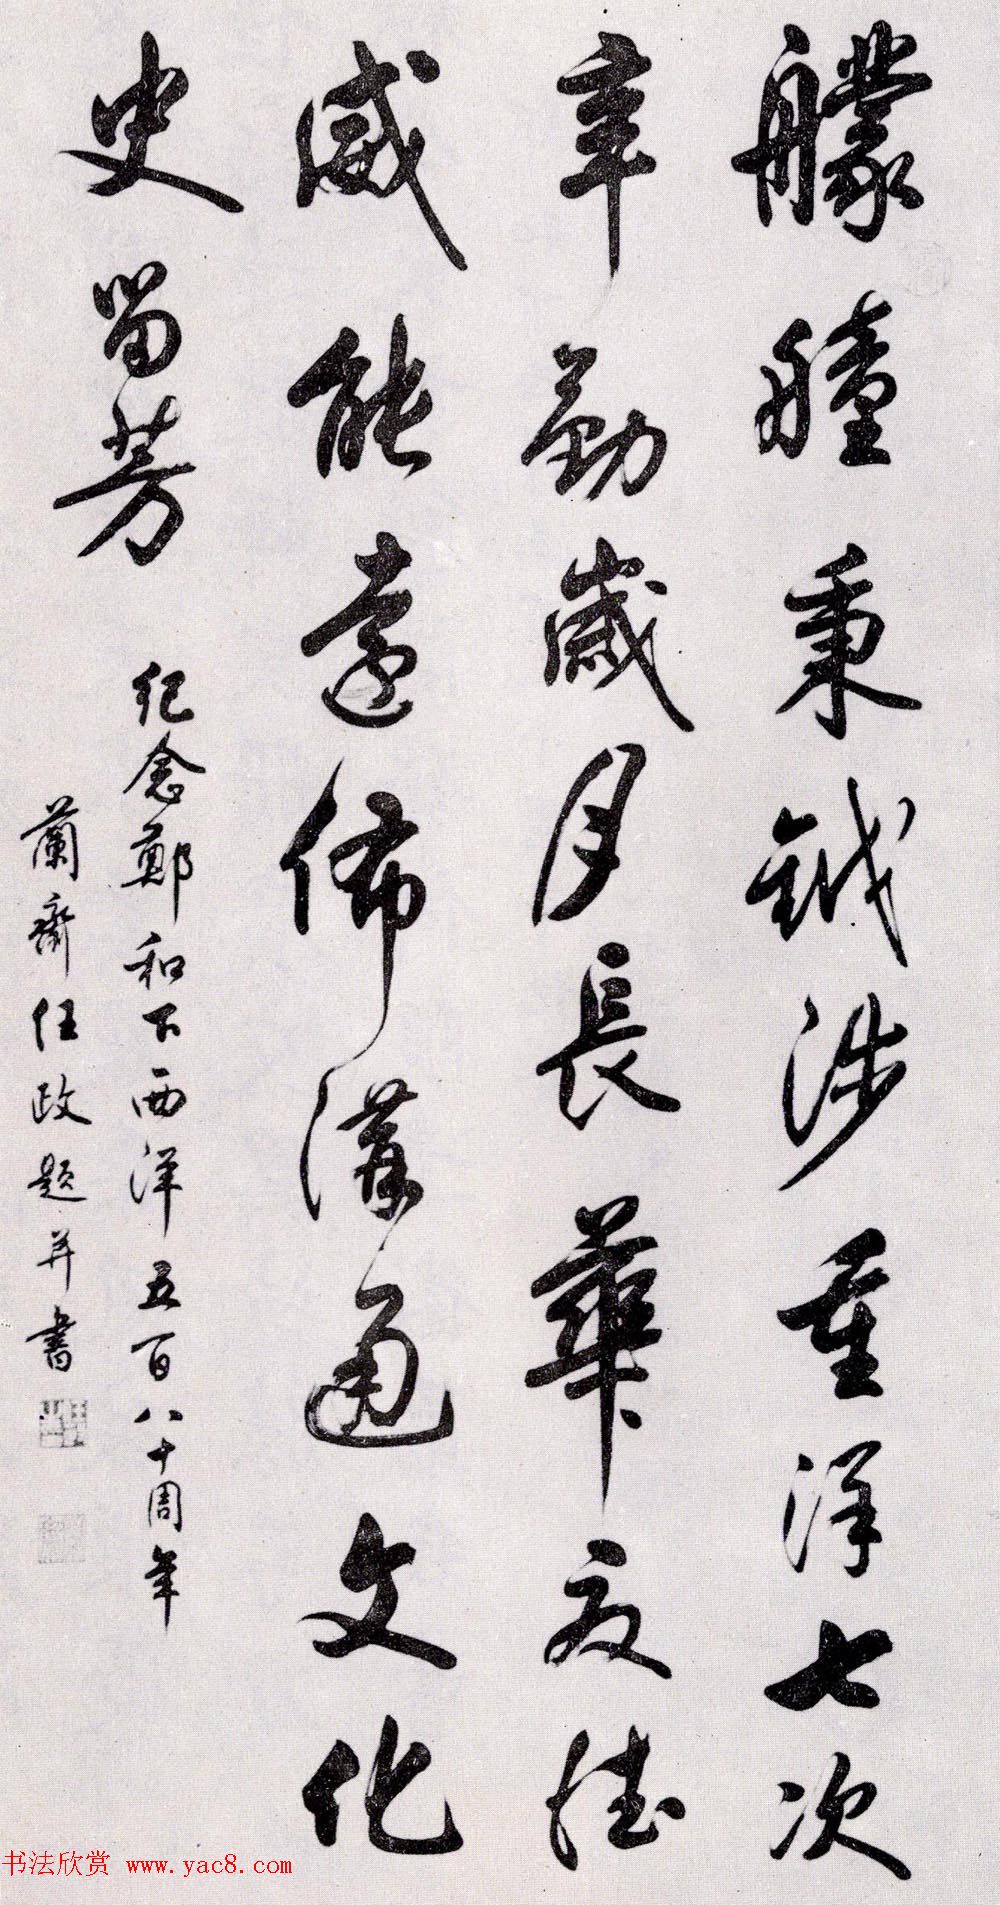 艨艟秉钺涉重洋七次
辛勤歲月長華夏德
威能遠佈溝通文化
史留芳
纪念鄭和下西洋五百八十周年
蘭齋任政題并書
书法欣赏 www.yac8.com